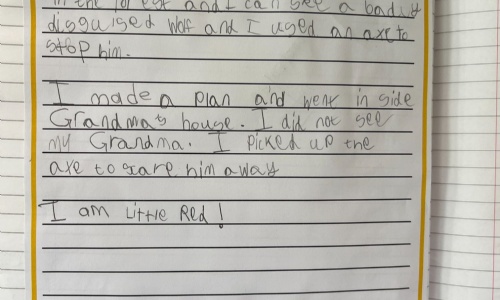 in the forest and I can see a badly
disguised wolf and I used an axe to
stop him.
I made a plan and went in side
Grandma's house. I did not see
my Grandma. I picked up the
axe to scare him away
I am Little Red!